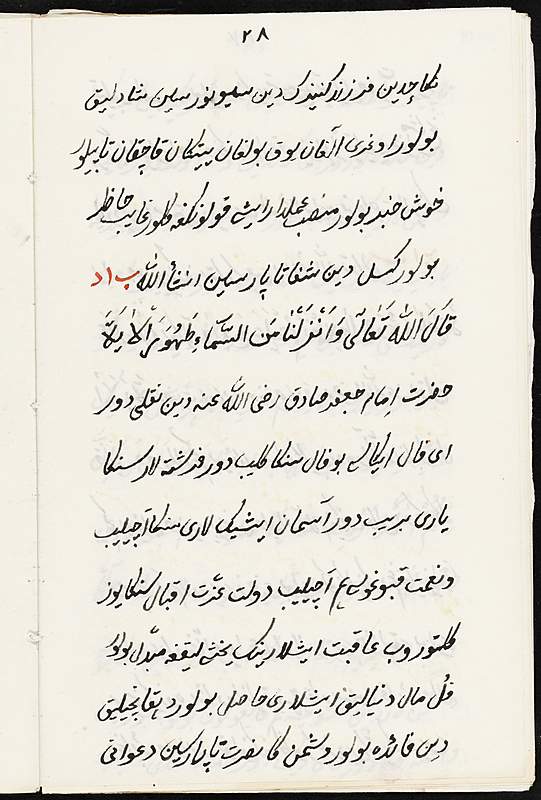 ۲۸
نکاحدین فرزندکنیندک دین سیونورسین شادلیق
بولور اوغری آلغان یوق بولغان ییتکان قاچقان تابیلور
خوش خبر بولور منصب عملدارایشی قولونکغه کلور غایب حاظر
بولور کسل دین شفا تاپارسین انشأ الله پ ا د
قَالَ الله تَعَالَی وَاَنْزَلْنَا مَنَ السَّمَاءِ طَهُوَرًا الاٰیَةَ
حضرت امام جعفر صادق رضی الله عنه دین نقلی دور
ای فال ایکاسی بو فال سنکا کلیب دور فرشته لار سنکا
یاری بریب دور آسمان ایشیک لاری سنکا آچیلیب
و نعمت قبوغی هم آچیلیب دولت عزّت اقبال سنکا یوز
کلتوروب عاقبت ایشلارینک یخشی لیقغه مبدل بولور
قُل مال دنیالیق ایشلاری حاصل بولور دهقانچیلیق
دین فائده بولور دشمن کا نصرت تاپارسین دعوانی